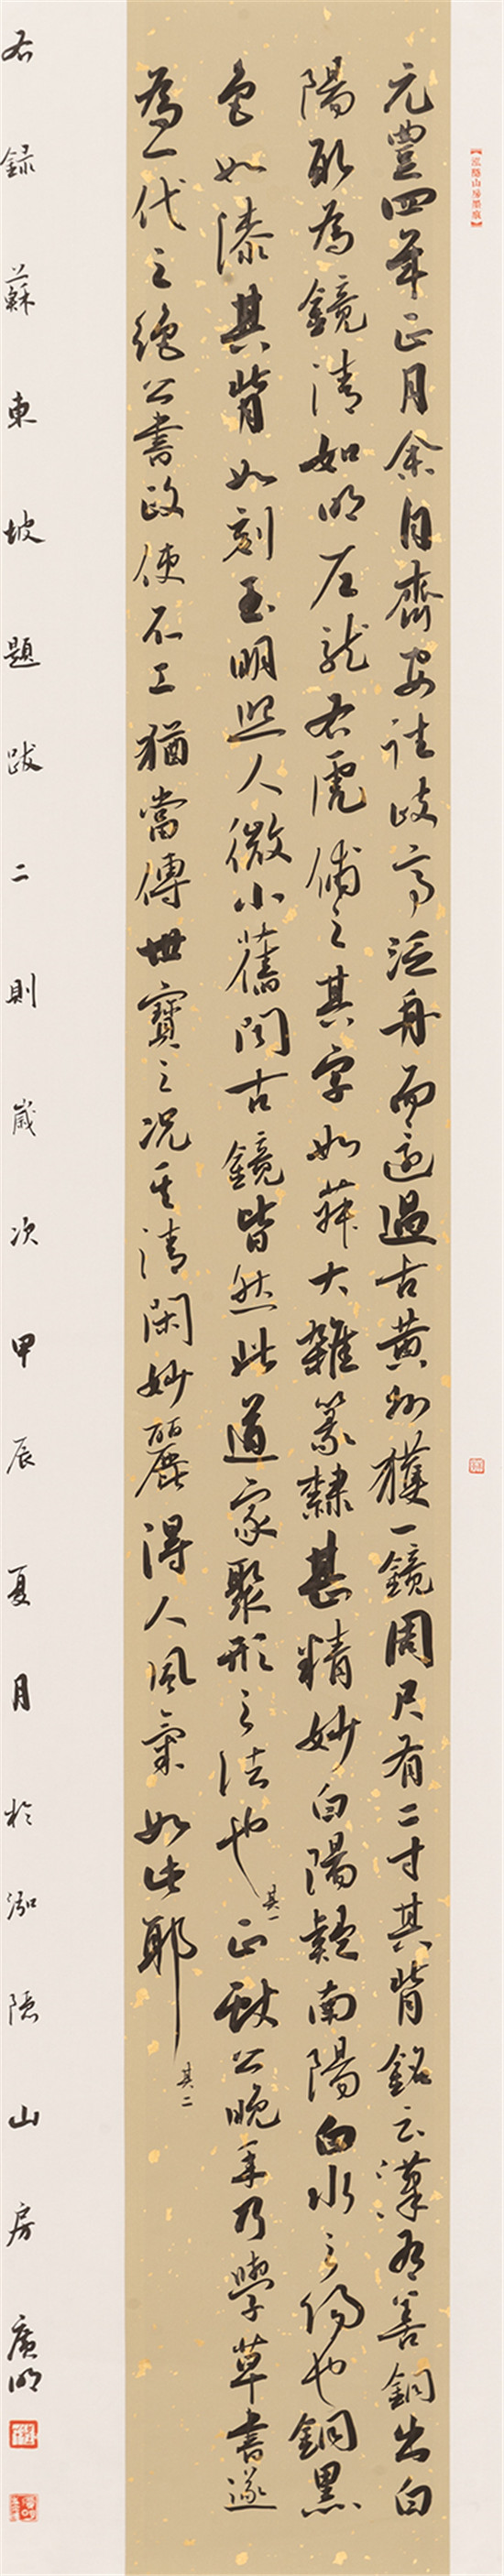 【泓隱山房墨痕】
元豐四年正月余自齊安往歧亭泛舟而還過古黃州獲一鏡周尺有二寸其背銘云漢有善銅出白
陽取為鏡清如明左龍右虎俌之其字如菽大雜篆隸甚精妙白陽疑南陽白水之陽也銅黑
色如漆其背如刻玉明照人微小舊聞古鏡皆然此道家聚形之法也其一正獻公晚年乃學草書遂
為一代之絕公書政使不工猶當傳世寶之況其清閑妙麗得人風氣如此耶其二
右錄蘇東坡題跋二則歲次甲辰夏月於泓隱山房廣明